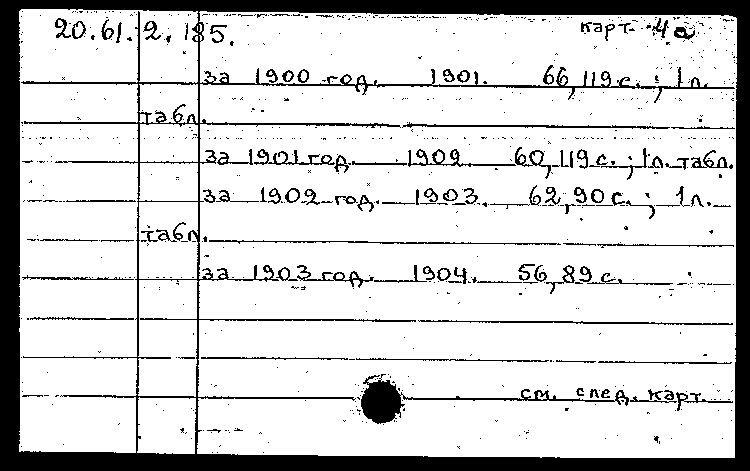 20.61.2.185. карт. 4а
за 1900 год. 1901. 66,119 с.; 1 л.
табл.
за 1901 год. 1902. 60,119 с.; 1 л. табл.
за 1902 год. 1903. 62,90 с.; 1 л.
табл.
за 1903 год. 1904. 56,89 с.
см. след. карт.